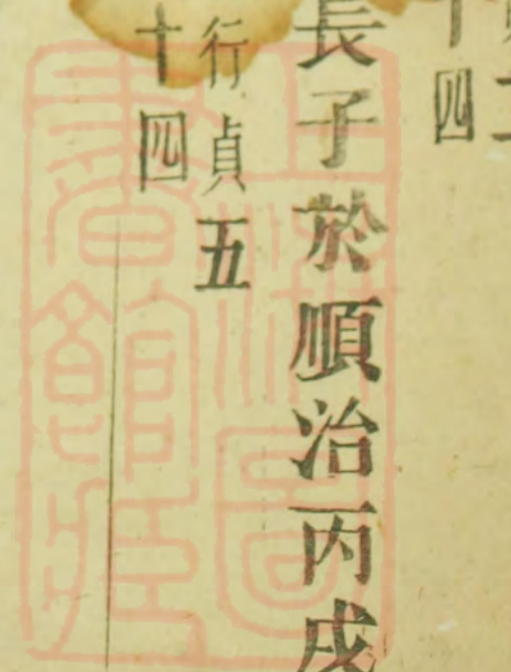 十四
長子於順治丙戌
行貞五
十四